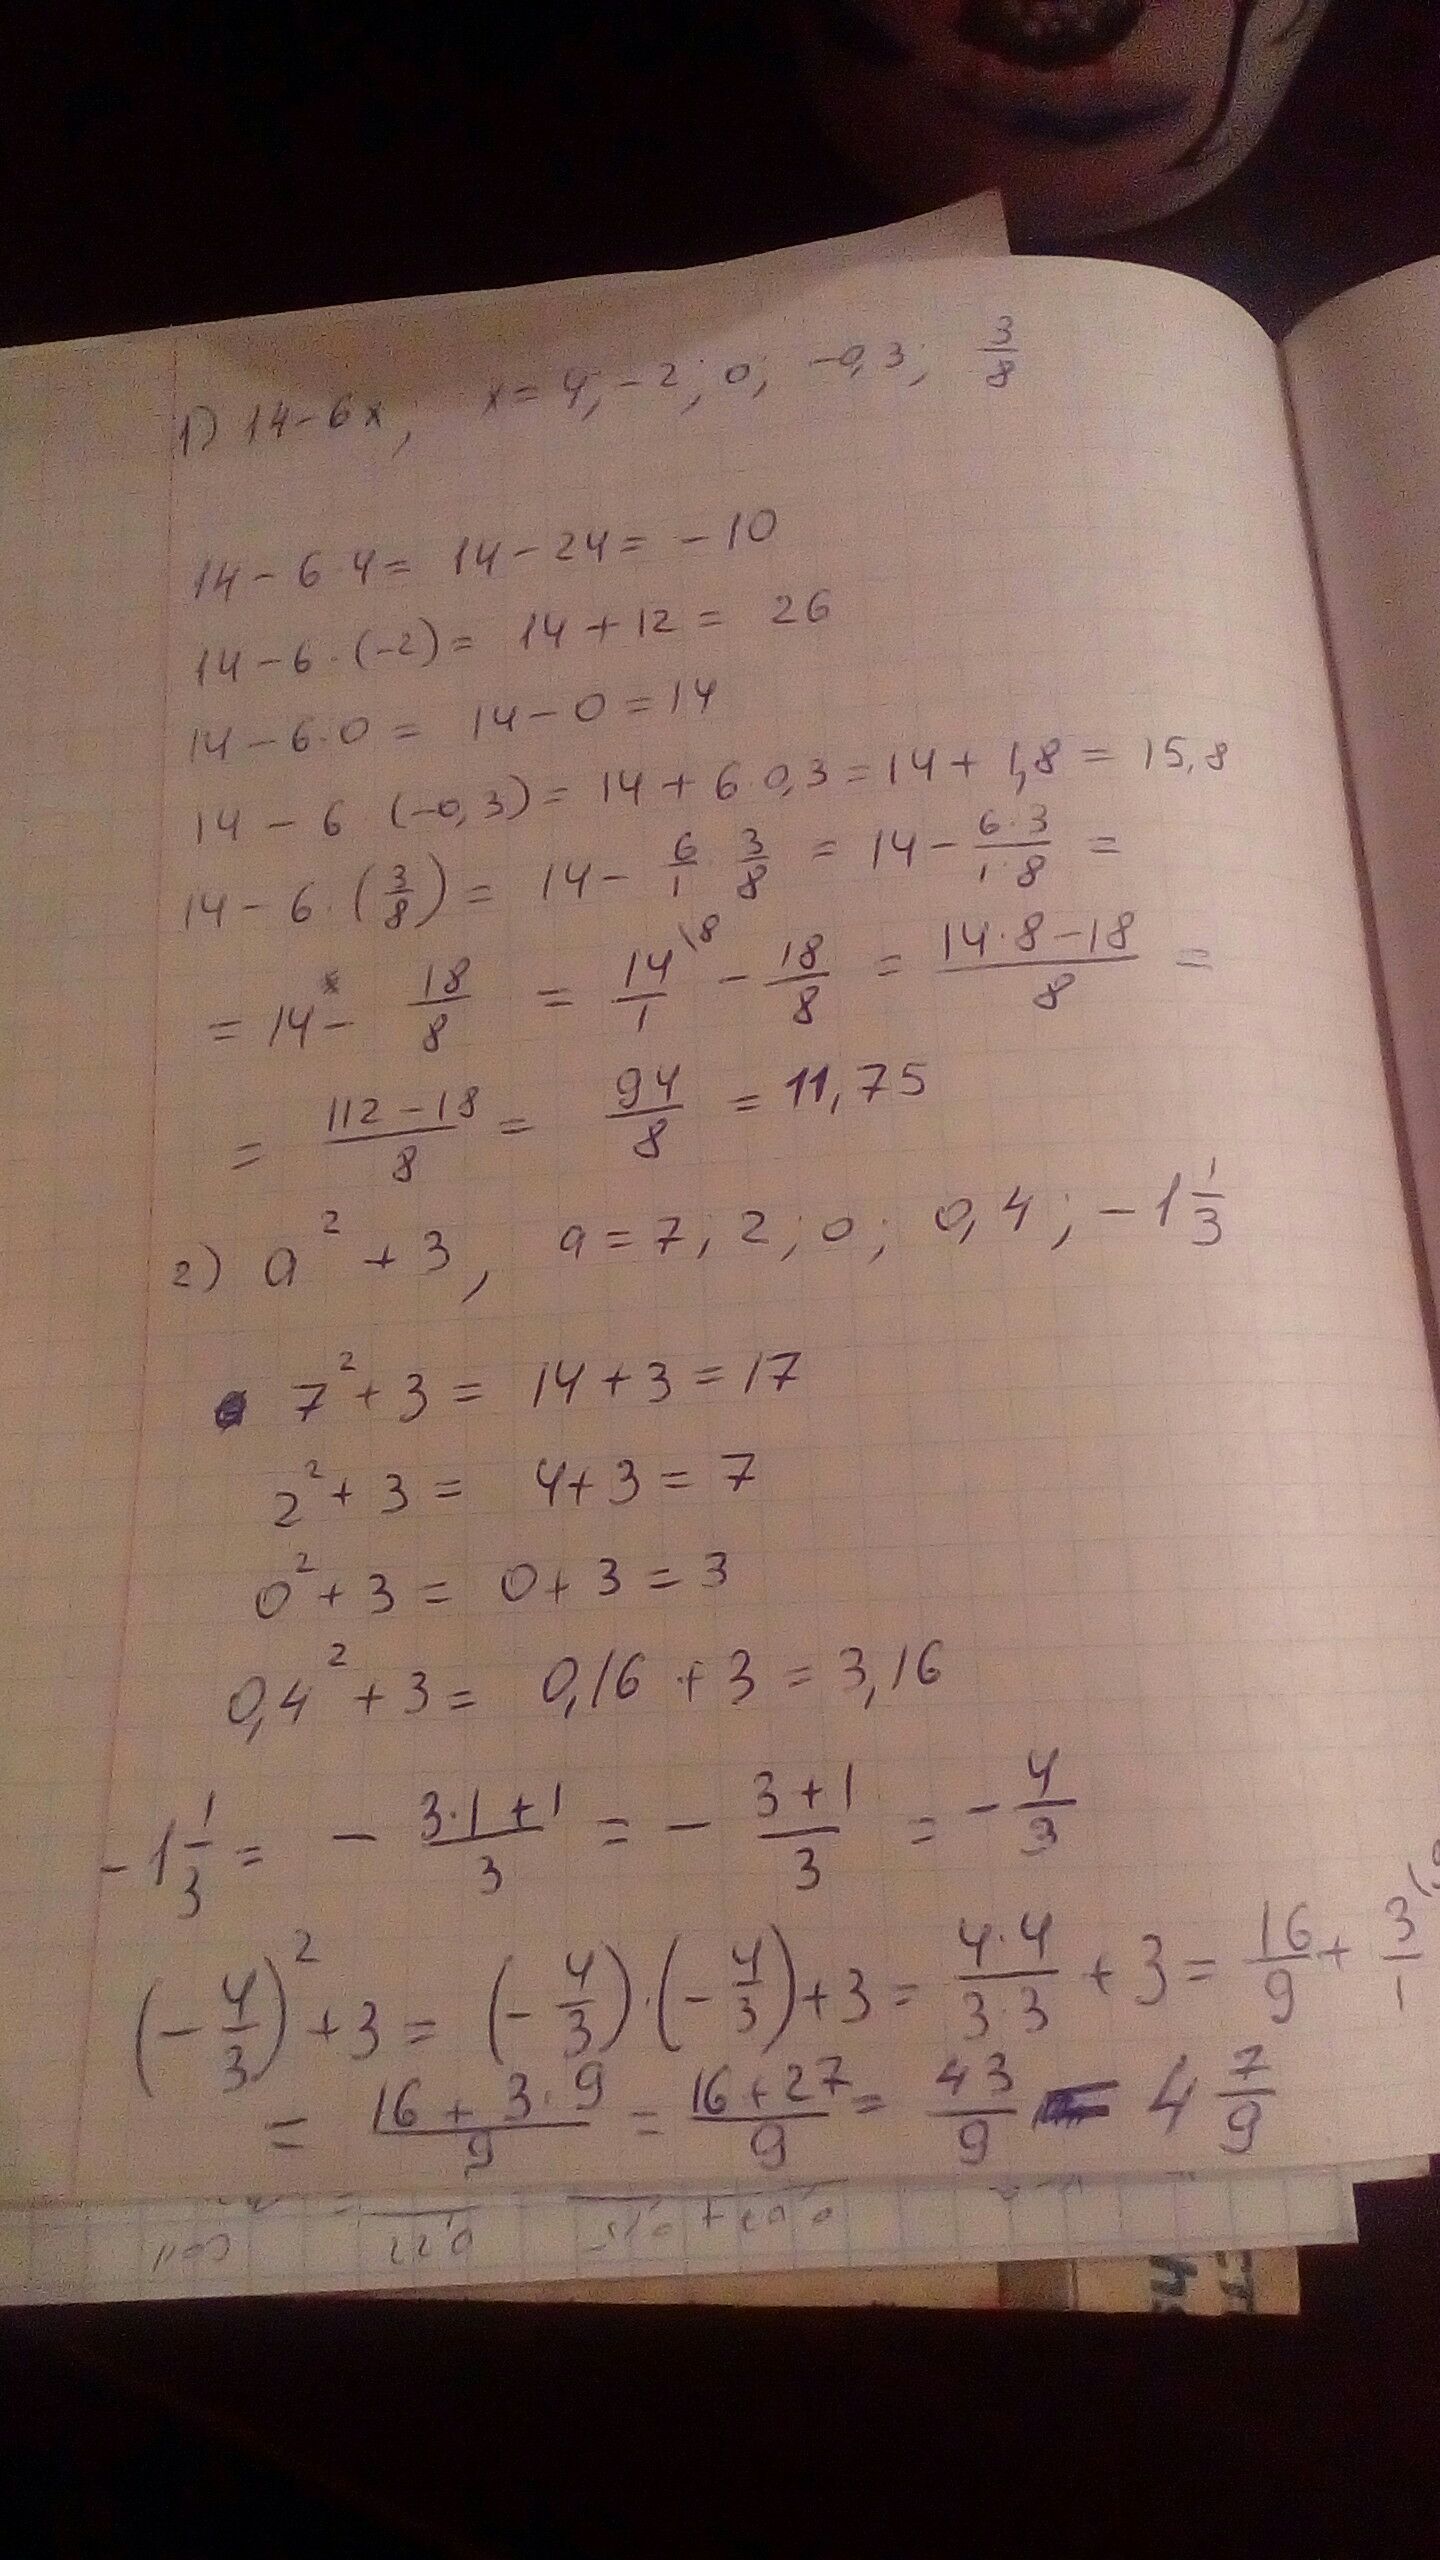 1) 14 - 6x, x = 4; -2; 0; -0,3; 3/8
14 - 6·4 = 14 - 24 = -10
14 - 6·(-2) = 14 + 12 = 26
14 - 6·0 = 14 - 0 = 14
14 - 6·(-0,3) = 14 + 6·0,3 = 14 + 1,8 = 15,8
14 - 6·(3/8) = 14 - 6/1 · 3/8 = 14 - 6·3/1·8 =
= 14 - 18/8 = 14/1 \8 - 18/8 = 14·8-18/8 =
= 112-18/8 = 94/8 = 11,75
2) a² + 3, a = 7; 2; 0; 0,4; -1 1/3
7² + 3 = 14 + 3 = 17
2² + 3 = 4 + 3 = 7
0² + 3 = 0 + 3 = 3
0,4² + 3 = 0,16 + 3 = 3,16
-1 1/3 = - 3·1+1/3 = - 3+1/3 = - 4/3
(-4/3)² + 3 = (-4/3)·(-4/3) + 3 = 4·4/3·3 + 3 = 16/9 + 3/1
= 16+3·9/9 = 16+27/9 = 43/9 = 4 7/9